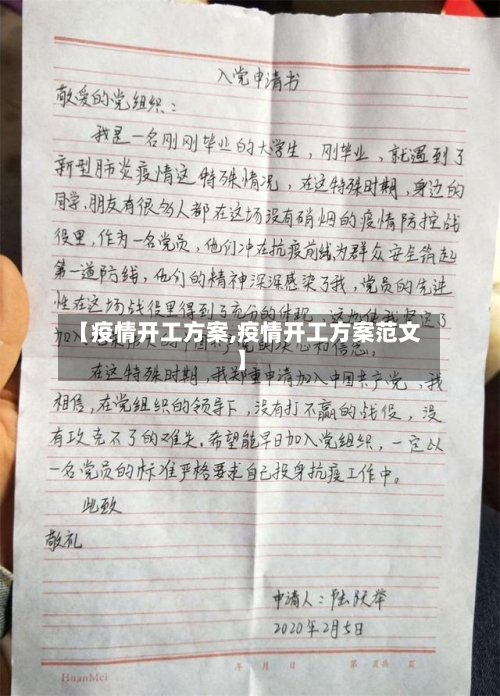 入党申请书
敬爱的党组织：
我是一名刚刚毕业的大学生，刚毕业，就遇到了
新型肺炎疫情这特殊情况，在这特殊时期，身边的
同学，朋友有很多人都在这场没有硝烟的疫情防控战
役里，作为一名党员，他们冲在抗疫前线，为群众安全筑起
第一道防线，他们的精神深深感染了我，党员的先进
性在这场战役里得到了充分的体现，这也使我坚定了
加入
【疫情开工方案,疫情开工方案范文
】
在这特殊时期，我郑重申请加入中国共产党，我
相信，在党组织的领导下，没有打不赢的战役，没
有攻克不了的难关，希望能早日加入党组织，一定以
一名党员的标准严格要求自己投身抗疫工作中。
此致
敬礼
申请人：陆
2020年2月5日
HuanMei
年 月 日 第 页